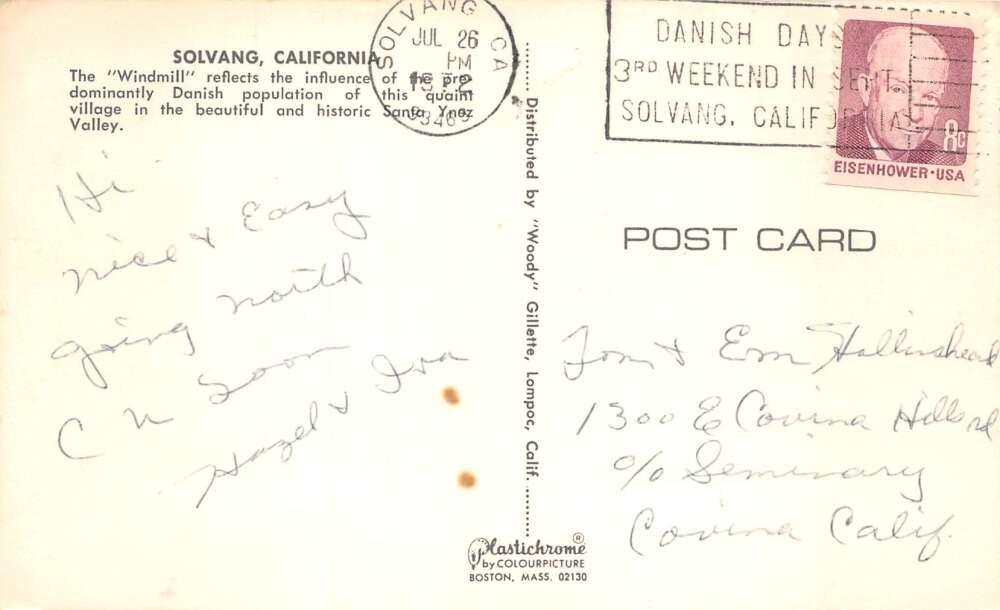 SOLVANG, CALIFORNIA
The "Windmill" reflects the influence of the pre-
dominantly Danish population of this quaint
village in the beautiful and historic Santa Ynez
Valley.
SOLVANG CA
JUL 26
PM
93463
DANISH DAYS
3RD WEEKEND IN SEPT.
SOLVANG, CALIFORNIA
8c
EISENHOWER·USA
POST CARD
Hi
nice & Easy
going north
C U Soon
Hazel & Iva
Distributed by "Woody" Gillette, Lompoc, Calif.
Tom & Em Hollinshead
1300 E Covina Hills rd
c/o Seminary
Covina Calif.
Plastichrome ®
by COLOURPICTURE
BOSTON, MASS. 02130